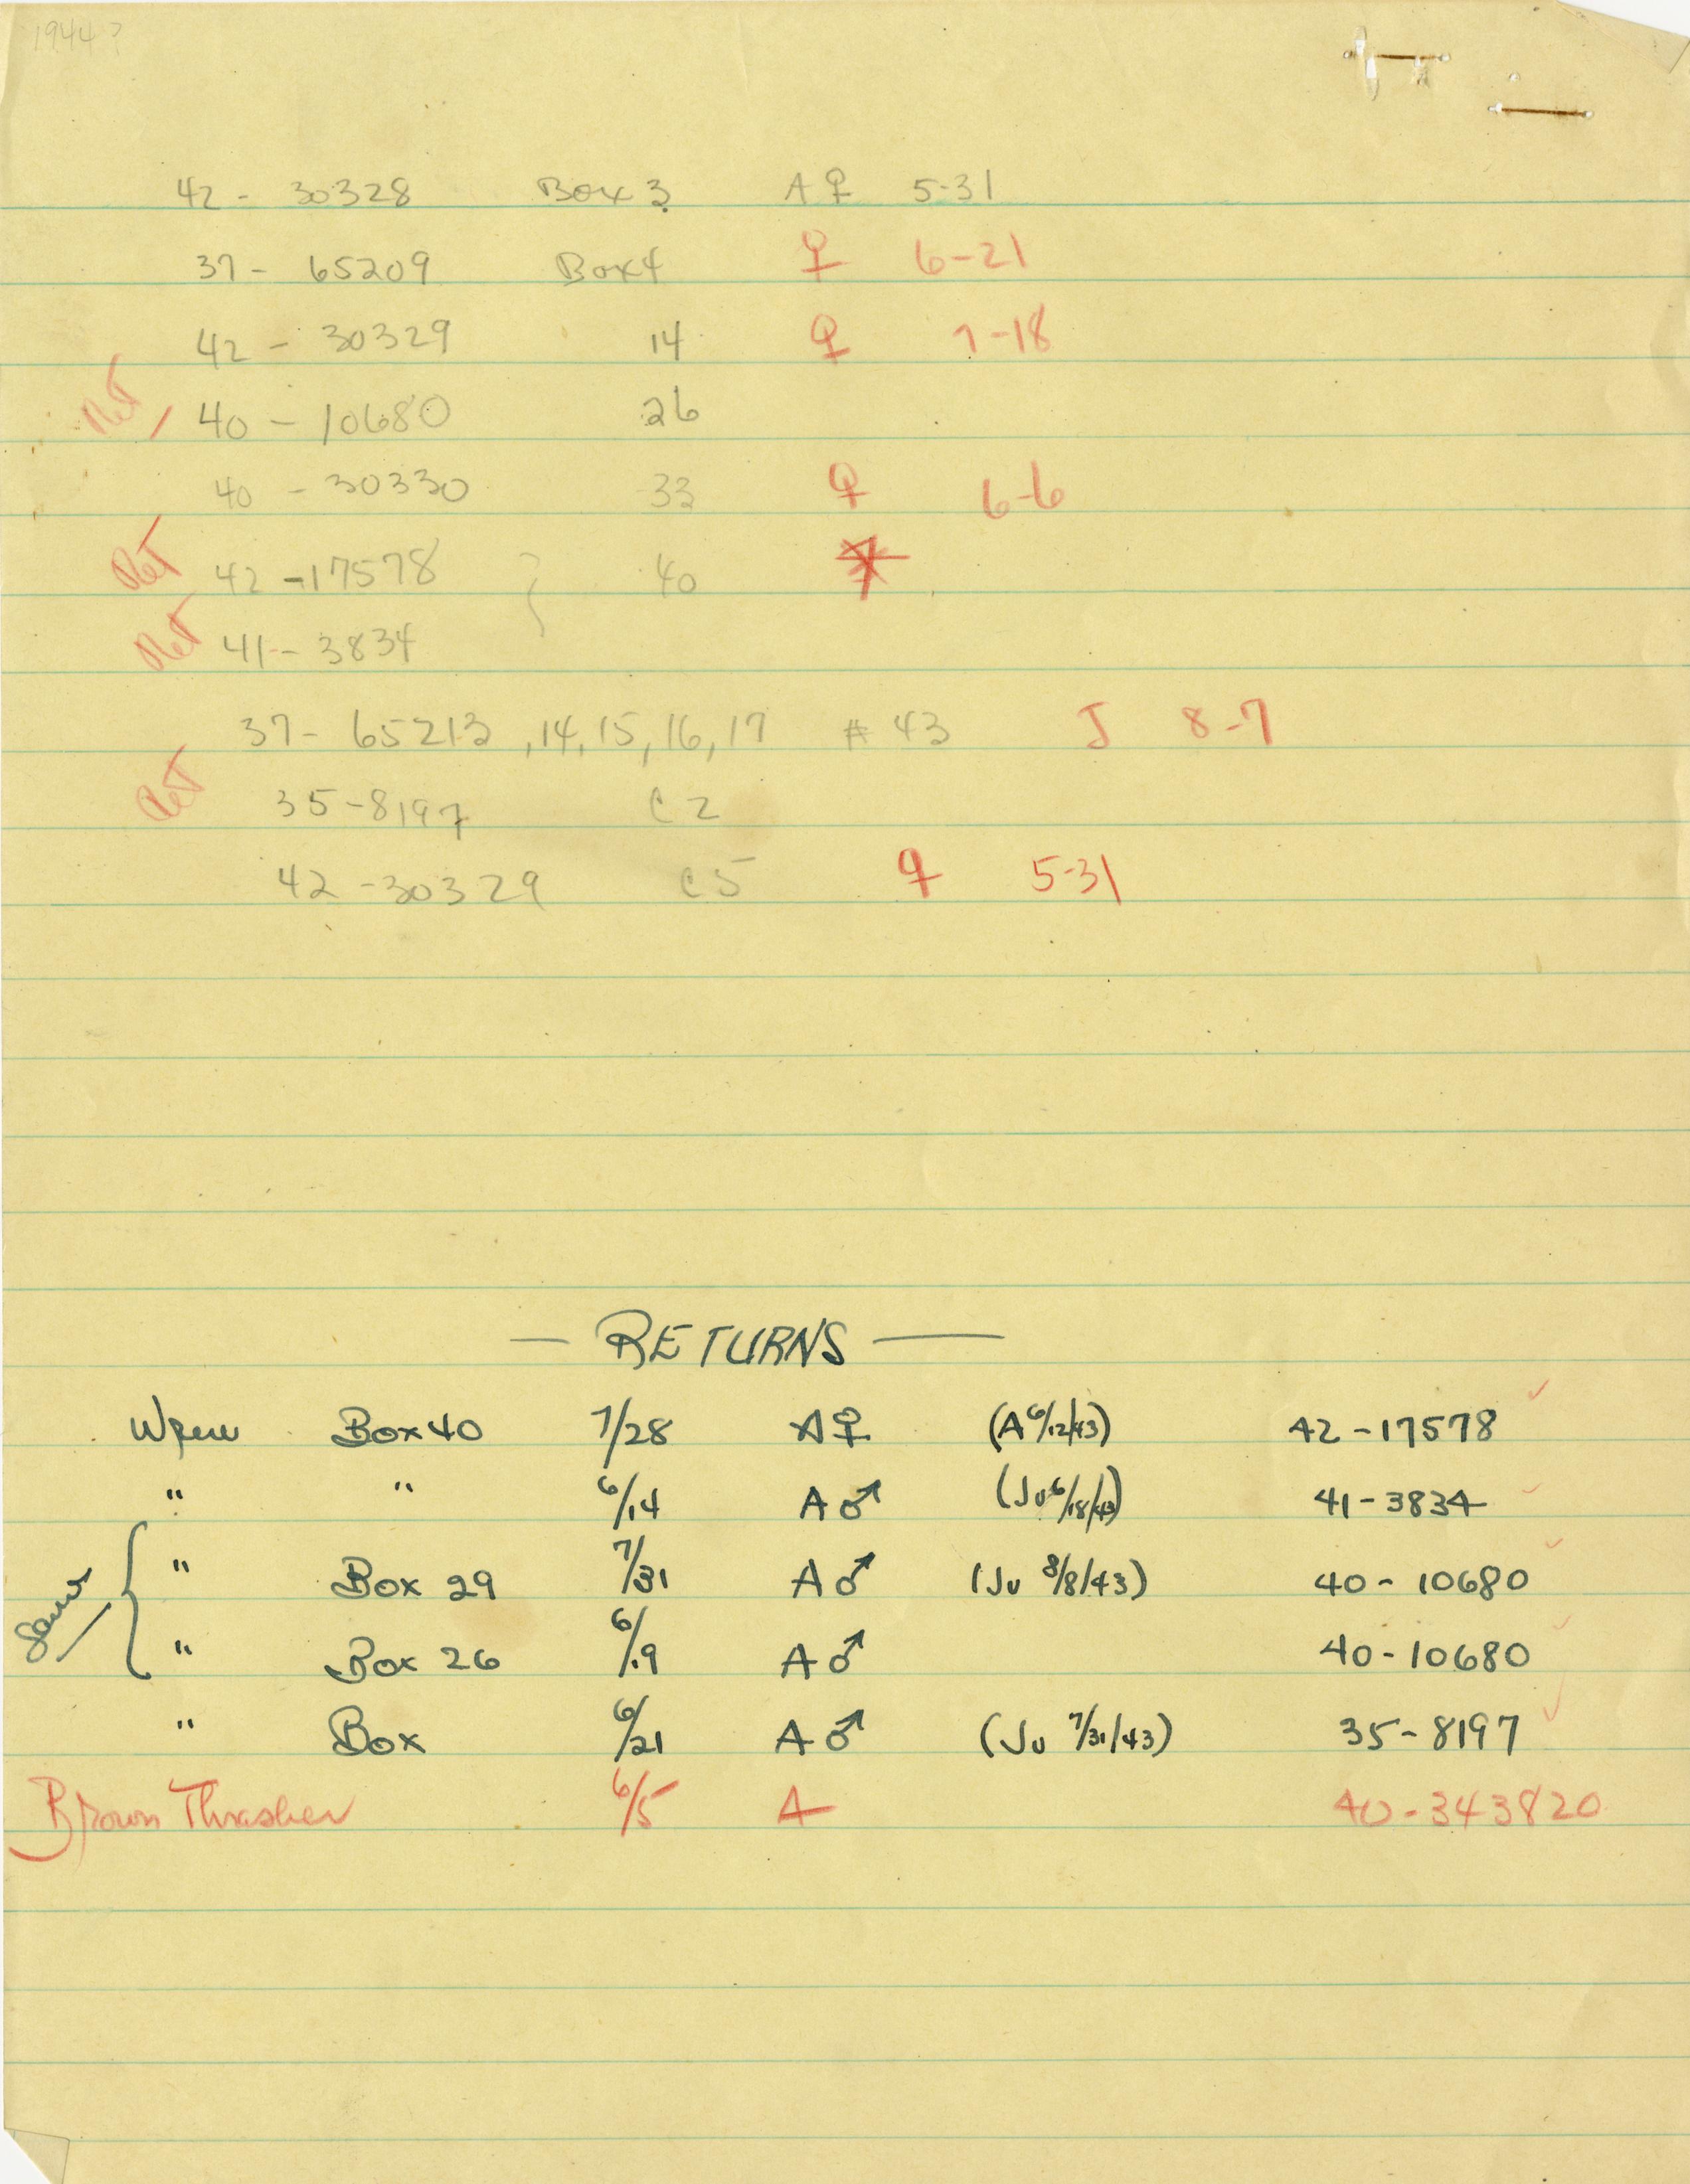 1944?
42 - 30328 Box 3 A ♀ 5-31
37 - 65209 Box 4 ♀ 6-21
42 - 30329 14 ♀ 7-18
Ret 40 - 10680 26
40 - 30330 33 ♀ 6-6
Ret 42 - 17578 } 40
Ret 41 - 3834
37 - 65213, 14, 15, 16, 17 # 43 J 8-7
Ret 35 - 8197 C 2
42 - 30329 C 5 ♀ 5-31
— RETURNS —
Wren Box 40 7/28 A ♀ (A 6/12/43) 42 - 17578 ✓
" " 6/14 A ♂ (Ju 6/18/43) 41 - 3834 ✓
Same { " Box 29 7/31 A ♂ (Ju 8/8/43) 40 - 10680 ✓
" Box 26 6/9 A ♂ 40 - 10680 ✓
" Box 6/21 A ♂ (Ju 7/31/43) 35 - 8197 ✓
Brown Thrasher 6/5 A 40 - 343820